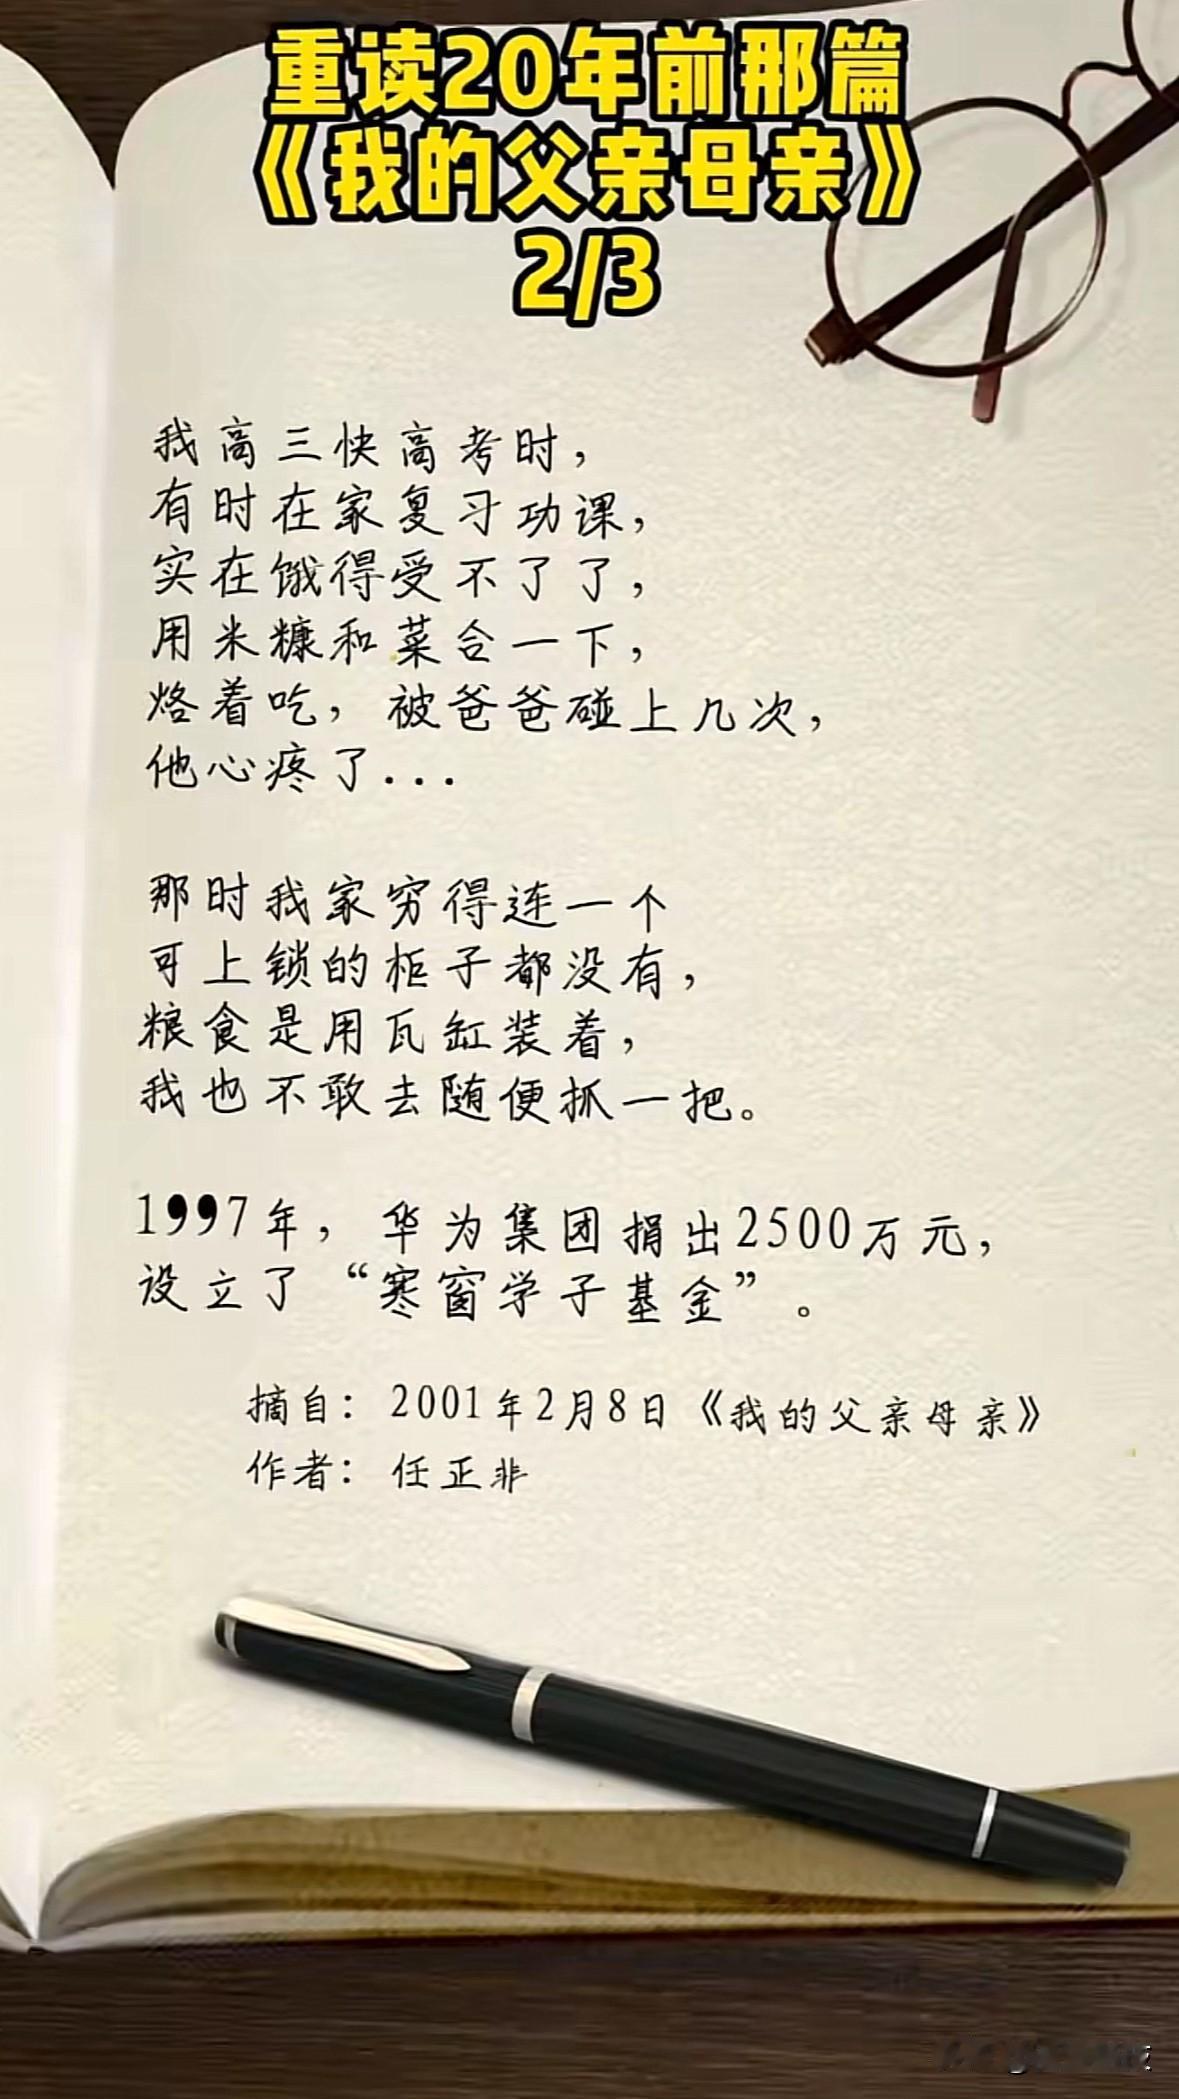 重读20年前那篇
《我的父亲母亲》
2/3
我高三快高考时，
有时在家复习功课，
实在饿得受不了了，
用米糠和菜合一下，
烙着吃，被爸爸碰上几次，
他心疼了...
那时我家穷得连一个
可上锁的柜子都没有，
粮食是用瓦缸装着，
我也不敢去随便抓一把。
1997年，华为集团捐出2500万元，
设立了“寒窗学子基金”。
摘自：2001年2月8日《我的父亲母亲》
作者：任正非